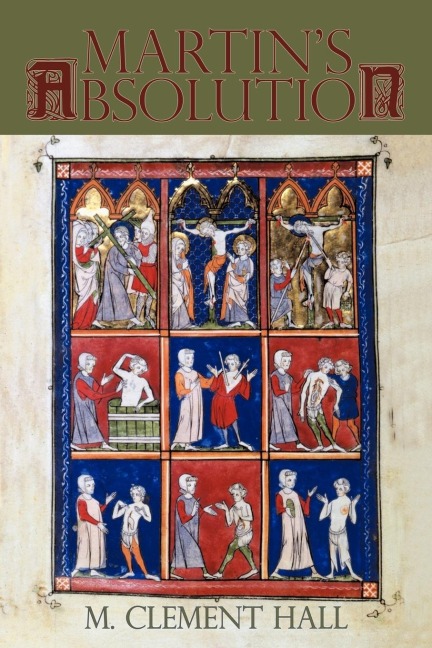 MARTIN'S
ABSOLUTION
M. CLEMENT HALL